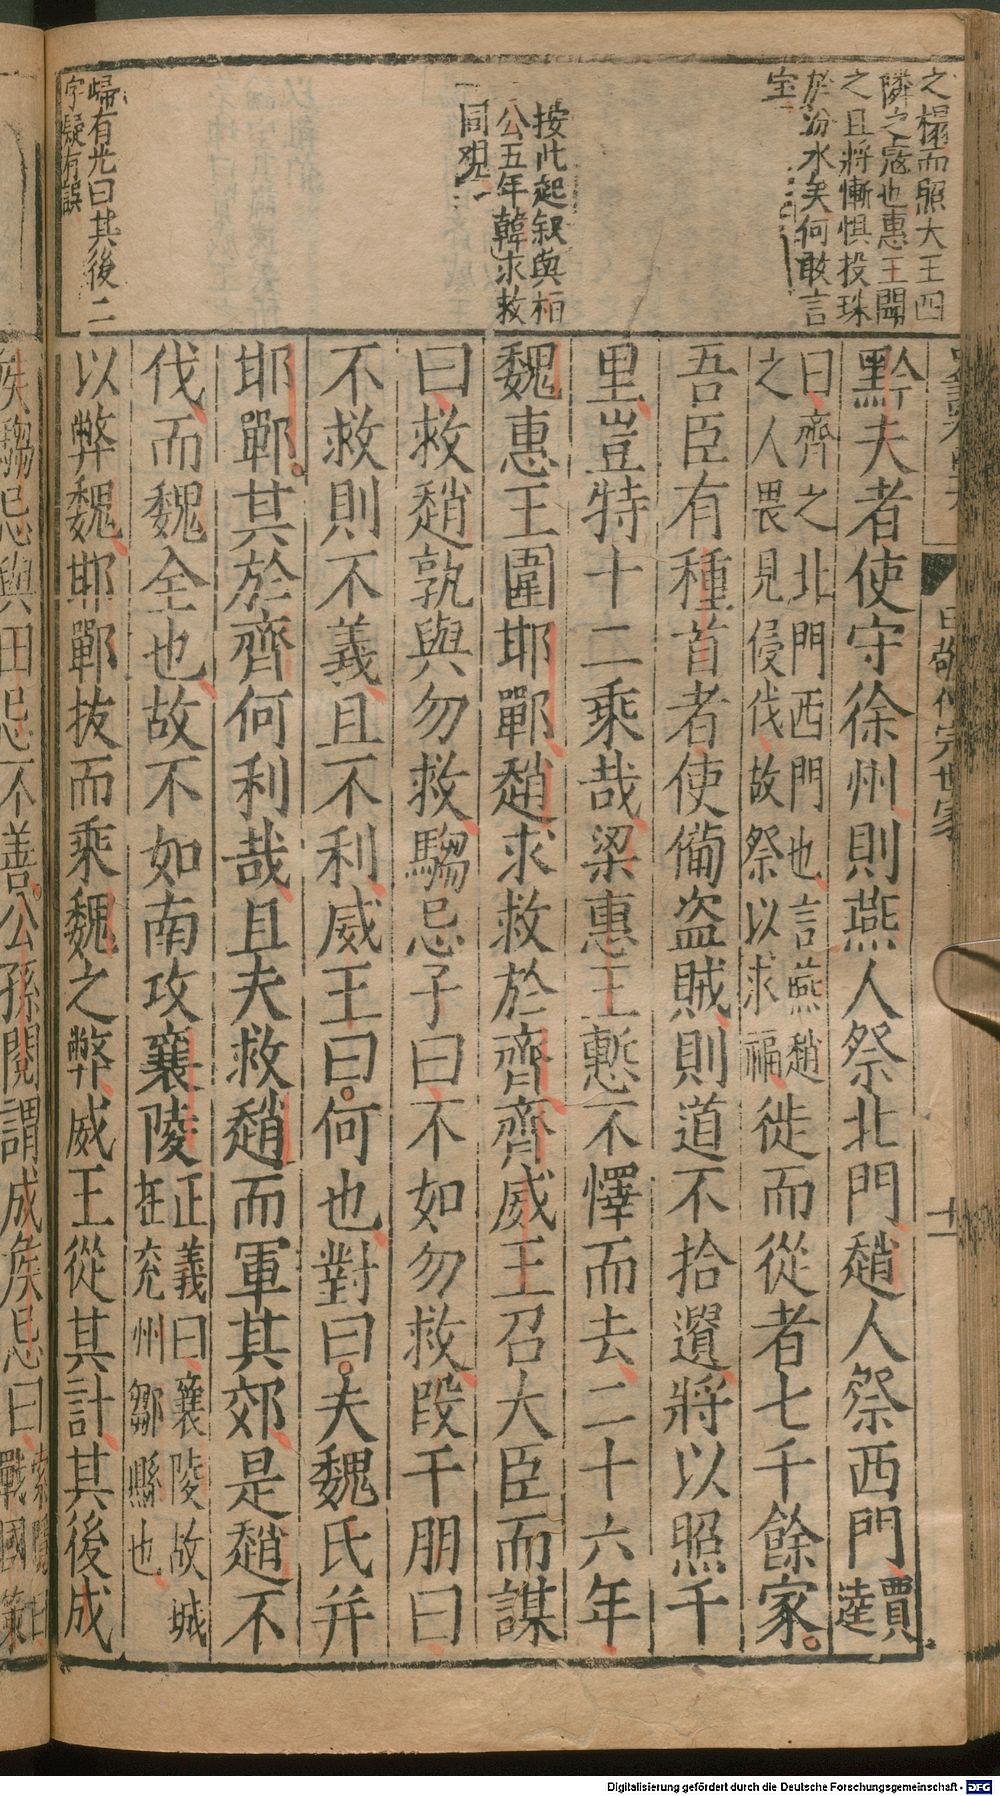 之榻而照大王四
隣之寇也惠王聞
之且將慚惧投珠
於汾水矣何敢言
宝
按此起叙與栢
公五年韓求救
同观
歸有光曰其後二
字疑有誤
田敬仲完世家
十一
黔夫者使守徐州則燕人祭北門趙人祭西門賈逵
曰齊之北門西門也言燕趙
之人畏見侵伐故祭以求福徙而從者七千餘家
吾臣有種首者使備盗賊則道不拾遺將以照千
里豈特十二乘哉梁惠王慙不懌而去二十六年
魏惠王圍邯鄲趙求救於齊齊威王召大臣而謀
曰救趙孰與勿救騶忌子曰不如勿救段干朋曰
不救則不義且不利威王曰何也對曰夫魏氏并
邯鄲其於齊何利哉且夫救趙而軍其郊是趙不
伐而魏全也故不如南攻襄陵正義曰襄陵故城
在兖州鄒縣也
以弊魏邯鄲拔而乘魏之弊威王從其計其後成
侯騶忌與田忌不善公孫閱謂成侯忌曰索隱曰
戰國策
Digitalisierung gefördert durch die Deutsche Forschungsgemeinschaft - DFG